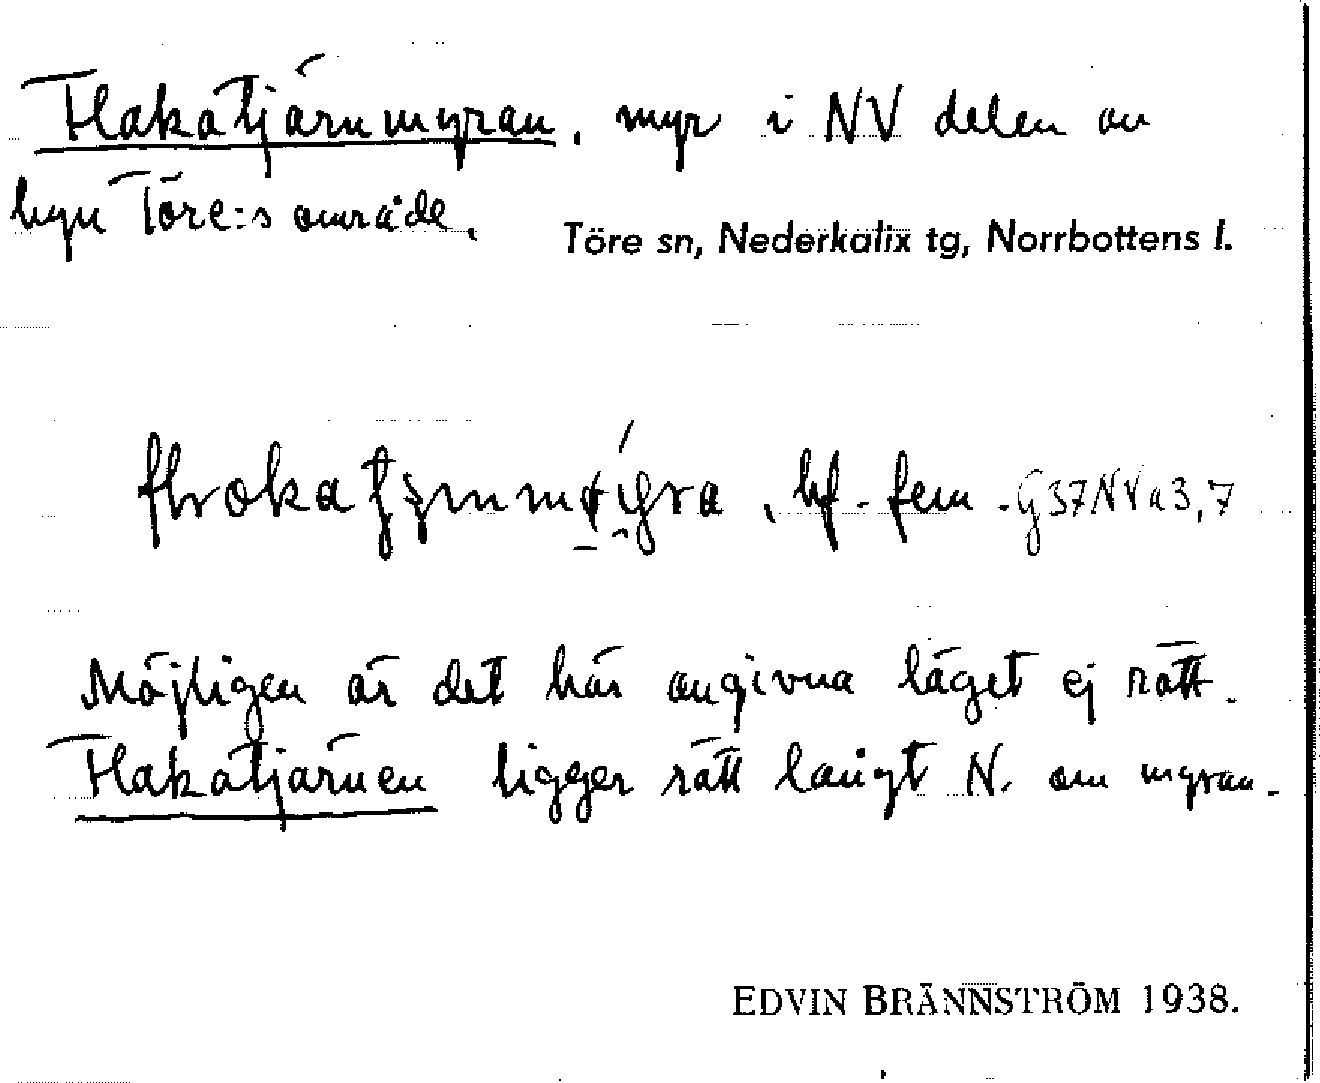 Flakatjärnmyran, myr i NV delen av
byn Töre:s område.
Töre sn, Nederkalix tg, Norrbottens l.
, bf. fem. G37NVa3,7
Möjligen är det här angivna läget ej rätt.
Flakatjärnen ligger rätt långt N. om myran.
EDVIN BRÄNNSTRÖM 1938.